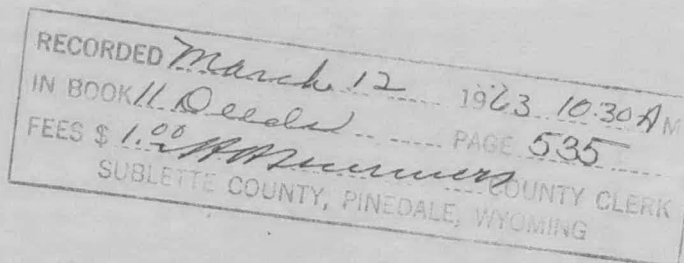 RECORDED March 12 1963 10:30 A M
IN BOOK 11 Deeds PAGE 535
FEES $ 1.00 COUNTY CLERK
SUBLETTE COUNTY, PINEDALE, WYOMING